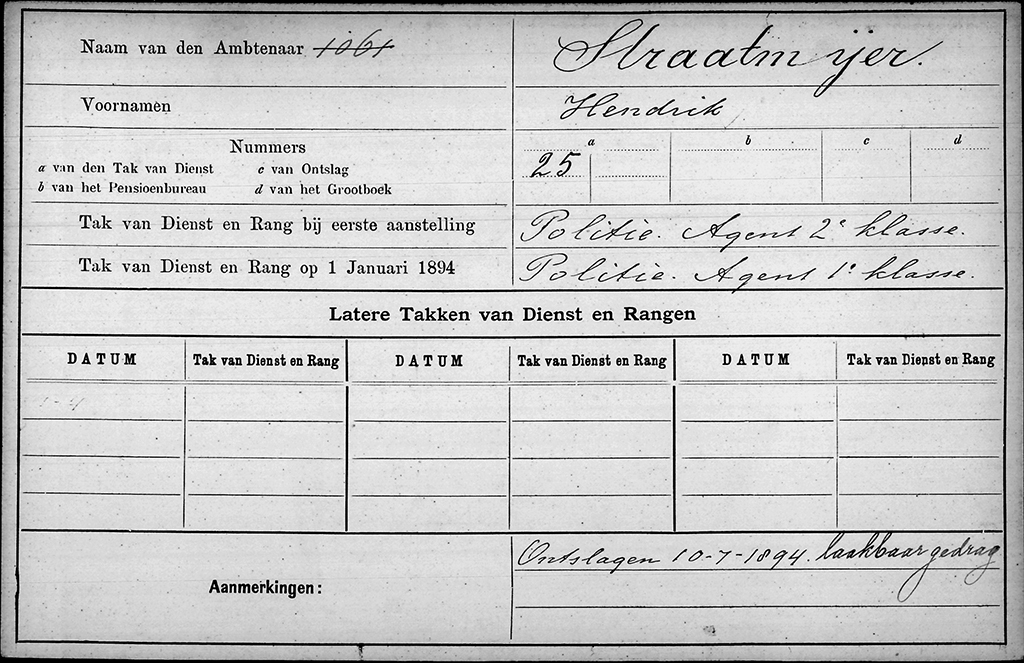 Naam van den Ambtenaar 1061 Straatmijer.
Voornamen Hendrik
Nummers
a van den Tak van Dienst c van Ontslag
b van het Pensioenbureau d van het Grootboek
a b c d
25
Tak van Dienst en Rang bij eerste aanstelling Politie. Agent 2e klasse.
Tak van Dienst en Rang op 1 Januari 1894 Politie. Agent 1e klasse.
Latere Takken van Dienst en Rangen
DATUM Tak van Dienst en Rang DATUM Tak van Dienst en Rang DATUM Tak van Dienst en Rang
Aanmerkingen: Ontslagen 10-7-1894. laakbaar gedrag